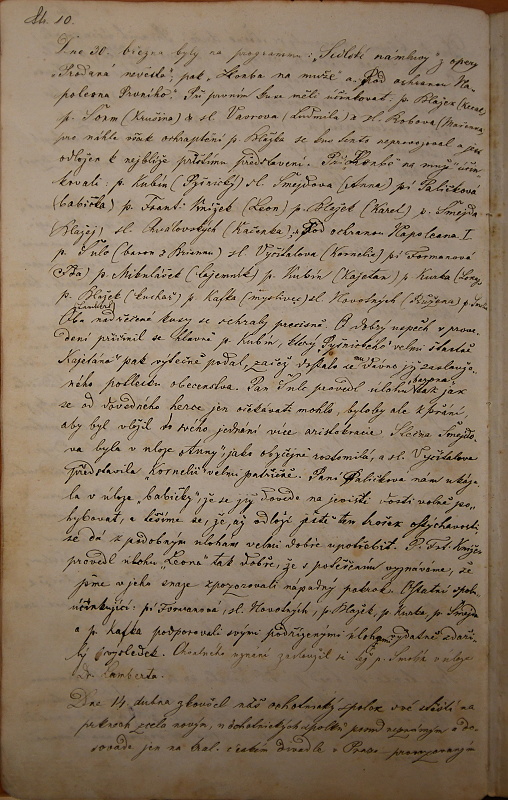 Str. 10.
Dne 30. března byly na programmu: „Sedlské námluvy" z opery
„Prodaná nevěsta", pak „Honba na muže" a „Pod ochranou Na-
poleona Prvního." Při prvním kuse měli účinkovat p. Blažek (Kecal)
p. (Krušina) a sl. Vávrova (Ludmila) a sl. Kobova (Mařenka)
pro náhlé však ochraptění p. Blažka se kus tento neprovozoval a
odložen k nejblíže příštímu představení. Při „Honbě na muže" účin-
kovali: p. Kubín (Pyšnický) sl. Šmejdova (Anna) pí Paličková
(babička) p. Frant. Knížek (Leon) p. Blažek (Karel) p. Šmejda
(Blažej), sl. (Kačenka) „Pod ochranou Napoleana I.
p. (baron z ) sl. Vyčítalova (Kornelie) pí Formanová
p. Mikuláček (tajemník) p. Kubín (Kajetan) p. Kurka
p. Blažek (Lukáš) p. Kafka (myslivec) sl. Novotných (Růžena) p.
Oba nadřečené kusy se sehrály precisně. O dobrý úspěch v prove-
dení přičinil se hlavně p. Kubín, který „Pyšnického" velmi šťastně
„Kajetana" pak výtečně podal, začež dostalo se mu dávno již zaslouže-
ného potlesku obecenstva. Pan provedl úlohu tak jak
se od dovedného herce jen očekávati mohlo, bylo by ale k přání,
aby byl vložil do svého jednání více aristokracie. Slečna Šmejdo-
va byla v úloze „Anny" jako obyčejně roztomilá, a sl. Vyčítalova
představila „Kornelii" velmi patřičně. Paní Paličkova nám ukáza-
la v úloze „babičky", že se již dovede na jevišti dosti volně po-
hybovat, a těšíme se, že, až odloží ještě ten trošek ostýchavosti
se dá k podobným úlohám velmi dobře upotřebit. P. Frt. Knížek
provedl úlohu „Leona" tak dobře, že s potěšením vyznáváme, že
jsme v jeho snaze zpozorovali nápadný pokrok. Ostatní spolu-
účinkující: pí Formanová, sl. Novotných, p. Blažek, p. Kurka, p. Šmejda
a p. Kafka podporovali svými podřízenými úlohami vydatně zdaři-
lý výsledek. Chvalného uznání zasloužil si též p. v úloze
Lamberta.
Dne 14. dubna zkoušel náš ochotnický spolek své štěstí na
prknech zcela novým, u ochotnických spolků posud neznámým a do-
posavade jen na král. českém divadle v Praze provozovaným